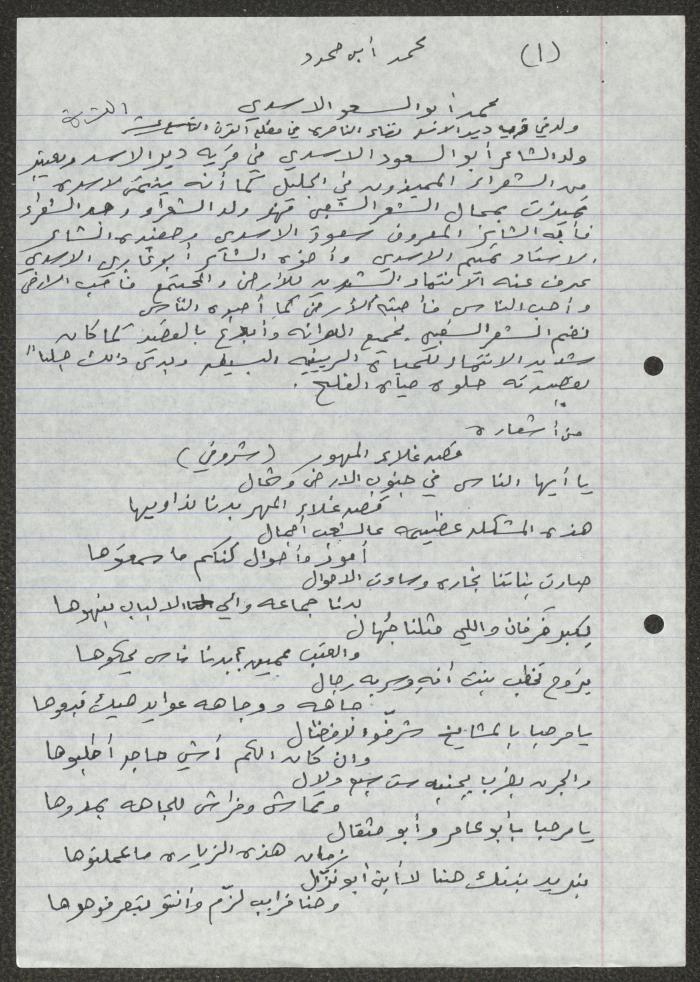 (١)
محمد أبو محمود
محمد أبو السعود الاسدي
ولد في قرية دير الاسد قضاء الناصرة في مطلع القرن التاسع عشر
ولد الشاعر أبو السعود الاسدي في قريه دير الاسد ويعتبر
من الشعراء المميزون في الجليل كما أنه ينتمي لاسرة
تميزت بمجال الشعر الشعبي فهو ولد الشعراء وجد الشعراء
فأبنه الشاعر المعروف سعود الاسدي وحفيده الشاعر
الاستاذ تميم الاسدي وأخوه الشاعر أبو غازي الاسدي
عرف عنه الانتماء الشديد للأرض والمجتمع فأحب الارض
وأحب الناس فأحبته الأرض كما أحبوه الناس
نضم الشعر الشعبي بجميع الوانه وأبدع بالقصيد كما كان
شديد الانتماء للحياة الريفيه البسيطه ويبدي ذلك جلياً
بقصيدته حلوه حياة الفلاح.
من أشعاره
قصيد غلاء المهور (شروقي)
يا أيها الناس في جنوب الارض وشمال
قصيد غلاء المهر بدنا نداويها
هذه المشكله عظيمه عالشعب أجمال
أمور وأحوال كلكم ما سمعوها
صارت بناتنا تجاره وساءت الاحوال
بدنا جماعه والي الالباب ينهوها
بكبو فرمان واللي مثلنا جهال
والعتب مميين بأيدنا ناس يحكوها
يروح تخطب بنت أنه وسربه رجال
جاهه ووجاهه عوايد هيك قيدوها
يا مرحبا بالمشايخ شرفوا لافضال
وان كان الكم أشي حاجه أطلبوها
والجرن بضرب بجنبيه ست سبع دلال
وقماش وفراش للجاهه بمدوها
يا مرحبا بأبو عامر وأبو مثقال
زمان هذه الزياره ما عملتوها
بنريد بنتك هنا لأبن أبو نزال
وحنا قرايب لزم وانتو بتعرفوها